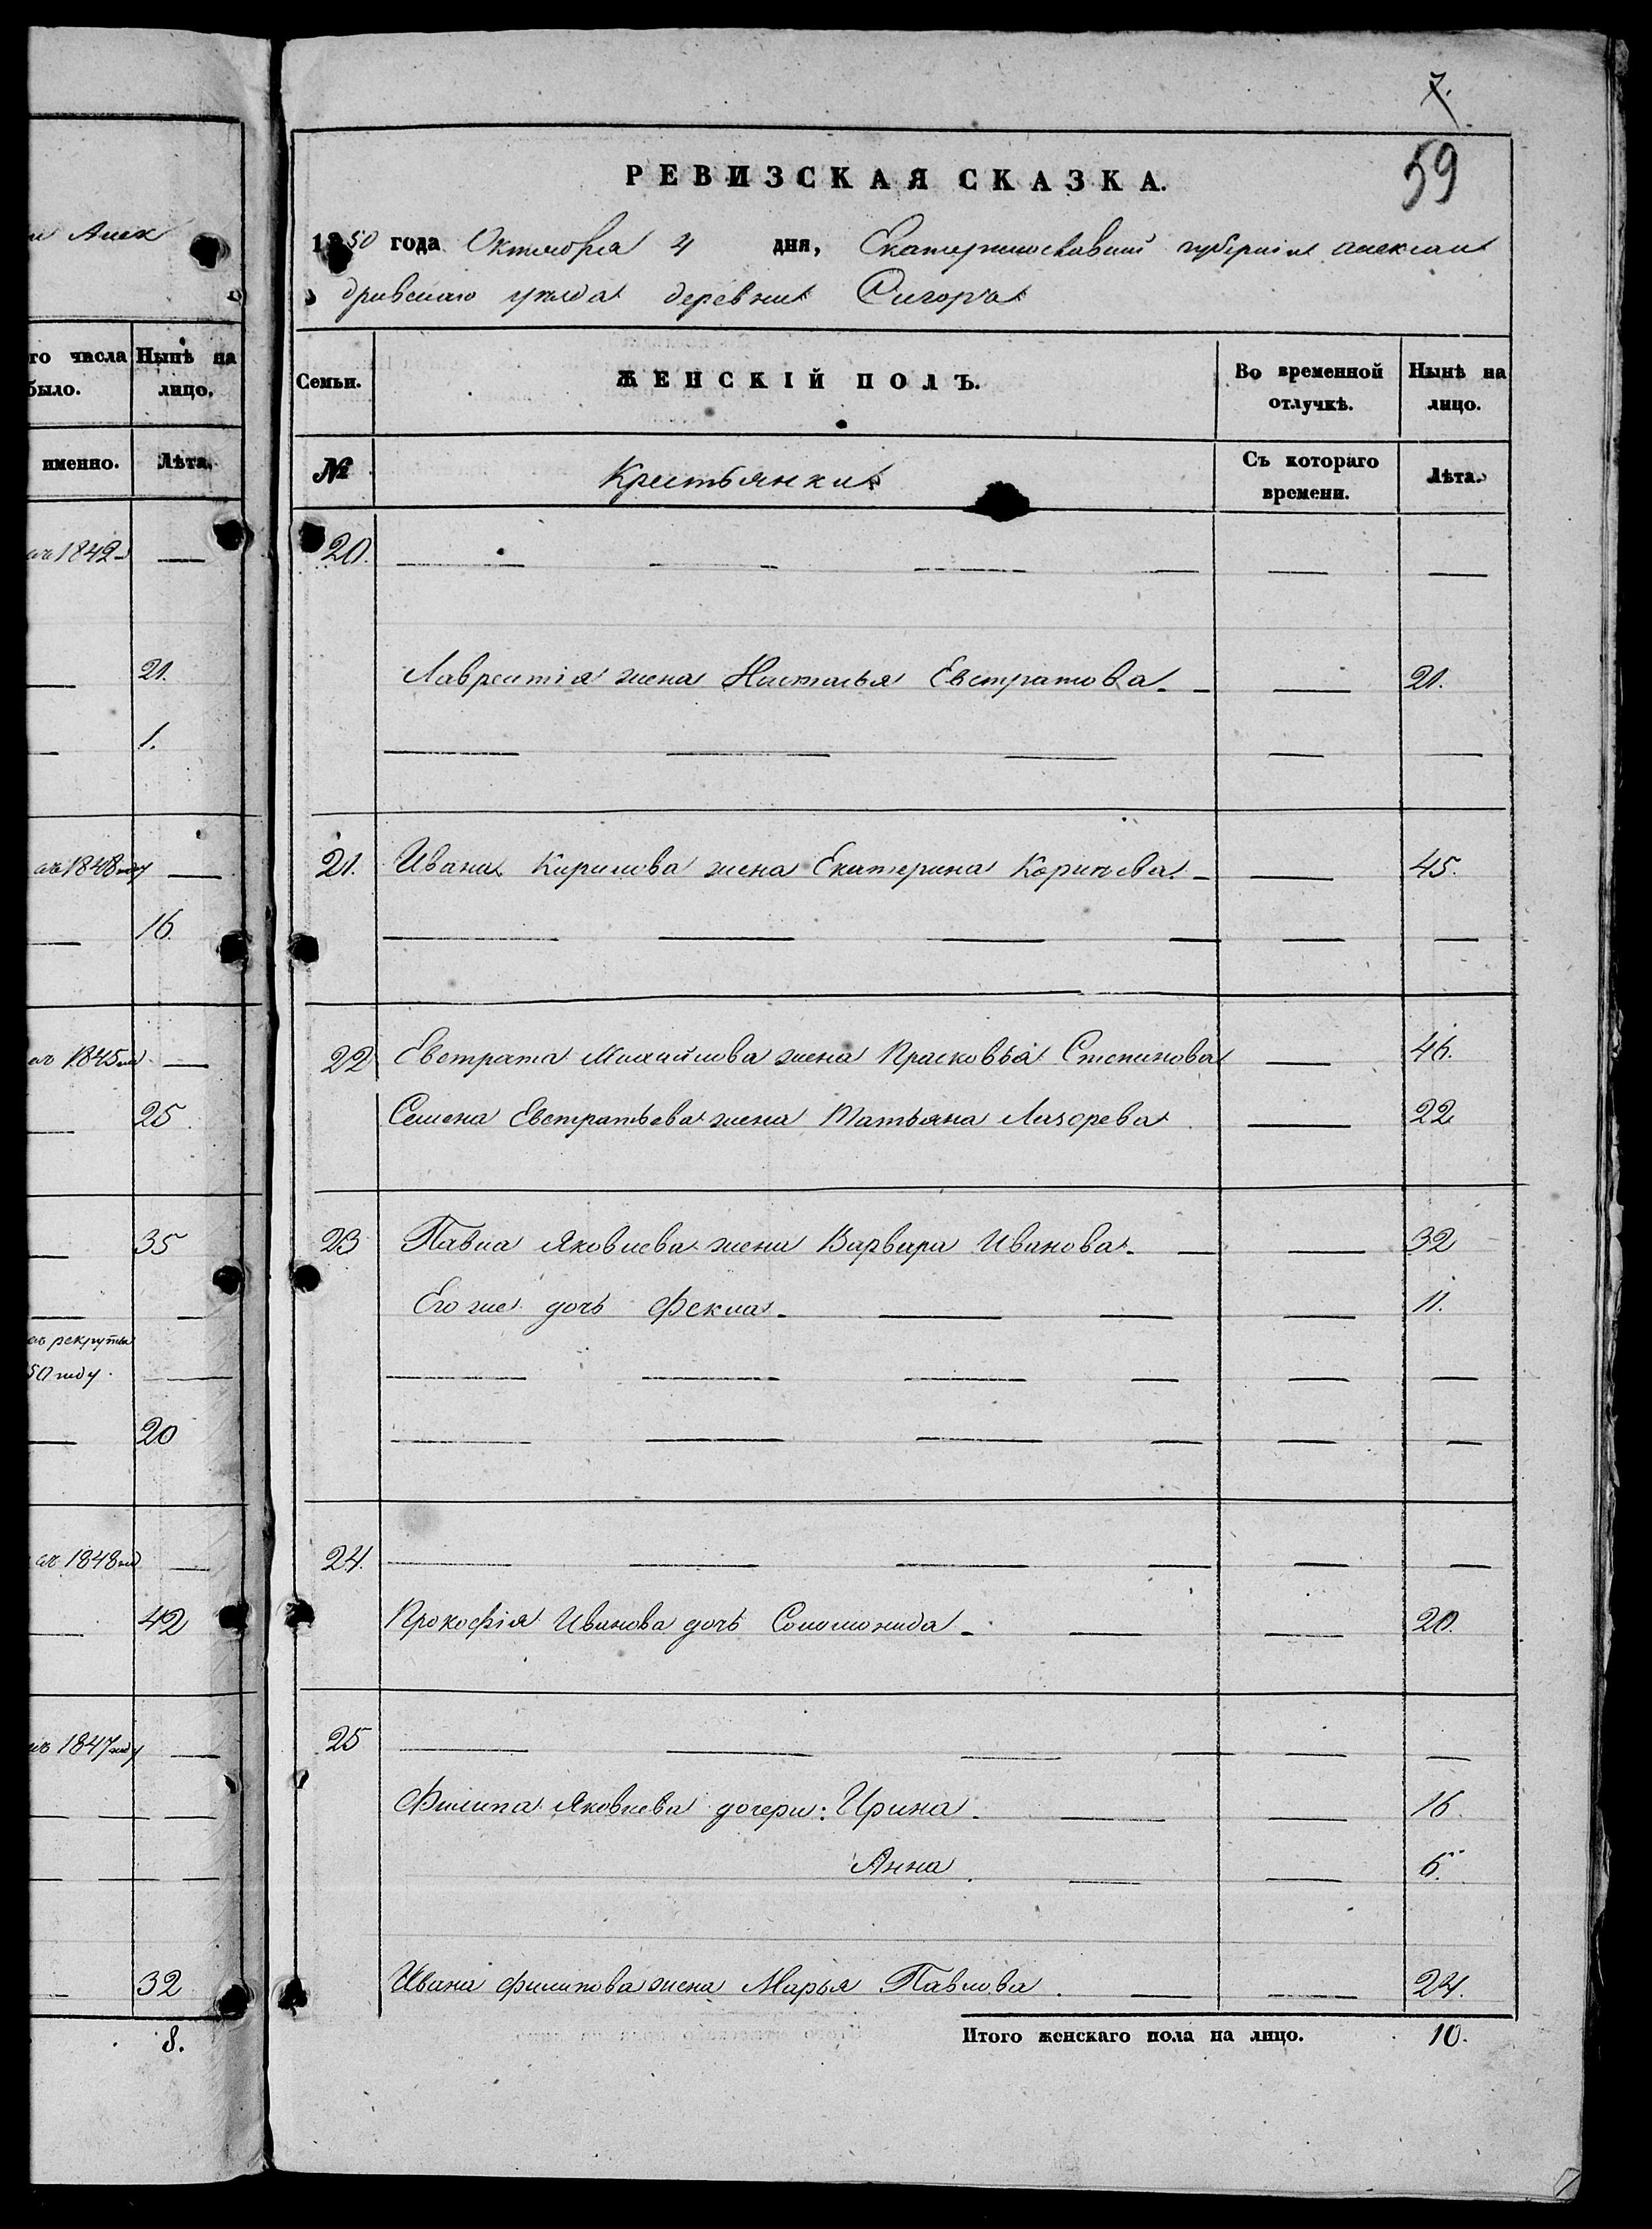 и Алек
го числа Нынѣ на
было. лицо.
именно. Лѣта.
1842
21.
1.
1848 году
16.
1845
25.
35
рекруты
50 году.
20
1848
42
1847 году
32
8.
7.
59
РЕВИЗСКАЯ СКАЗКА.
1850 года Октября 4 дня, Екатеринославской губерніи Алексан
дровскаго уѣзда деревни
Семьи. ЖЕНСКІЙ ПОЛЪ. Во временной отлучкѣ. Нынѣ на лицо.
№ Крестьянки Съ котораго времени. Лѣта.
20.
Лаврентія жена Настасья Евстратова 21.
21. Ивана Кирилова жена Екатерина Корнѣева 45.
22 Евстрата Михайлова жена Прасковья Степанова 46.
Семена Евстратьева жена Татьяна Лазарева 22
23 Павла Яковлева жена Варвара Иванова 32
Его же дочь Фекла 11.
24.
Прокофія Иванова дочь Соломонида 20.
25
Филипа Яковлева дочери: Ирина 16.
Анна 6.
Ивана Филипова жена Марья Павлова 24.
Итого женскаго пола на лицо. 10.